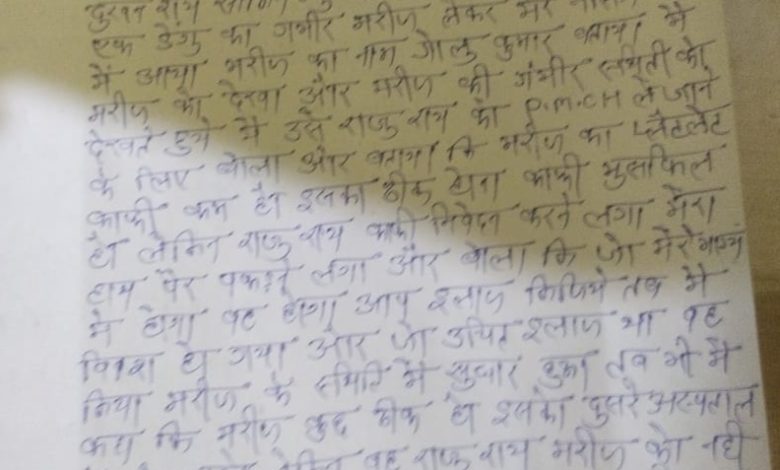 एक डेंगु का गंभीर मरीज लेकर मेरे
में आया मरीज का नाम गोलु कुमार बताया मैं
मरीज को देखा और मरीज की गंभीर स्थिती को
देखते हुये मैं उसे राजु राय को P.M.CH ले जाने
के लिए बोला और बताया कि मरीज का प्लेटलेट
काफी कम है इसका ठीक होना काफी मुसकिल
है लेकिन राजु राय काफी निवेदन करने लगा मेरा
हाथ पैर पकड़ने लगा और बोला कि जो मेरे भाग्य
में होगा वह होगा आप इलाज किजिये तब मैं
विवश हो गया और जो उचित इलाज था वह
किया मरीज के स्थिति में सुधार हुआ तब भी मैं
कहा कि मरीज कुछ ठीक है इसको दुसरे अस्पताल
वह राजु राय मरीज को नही